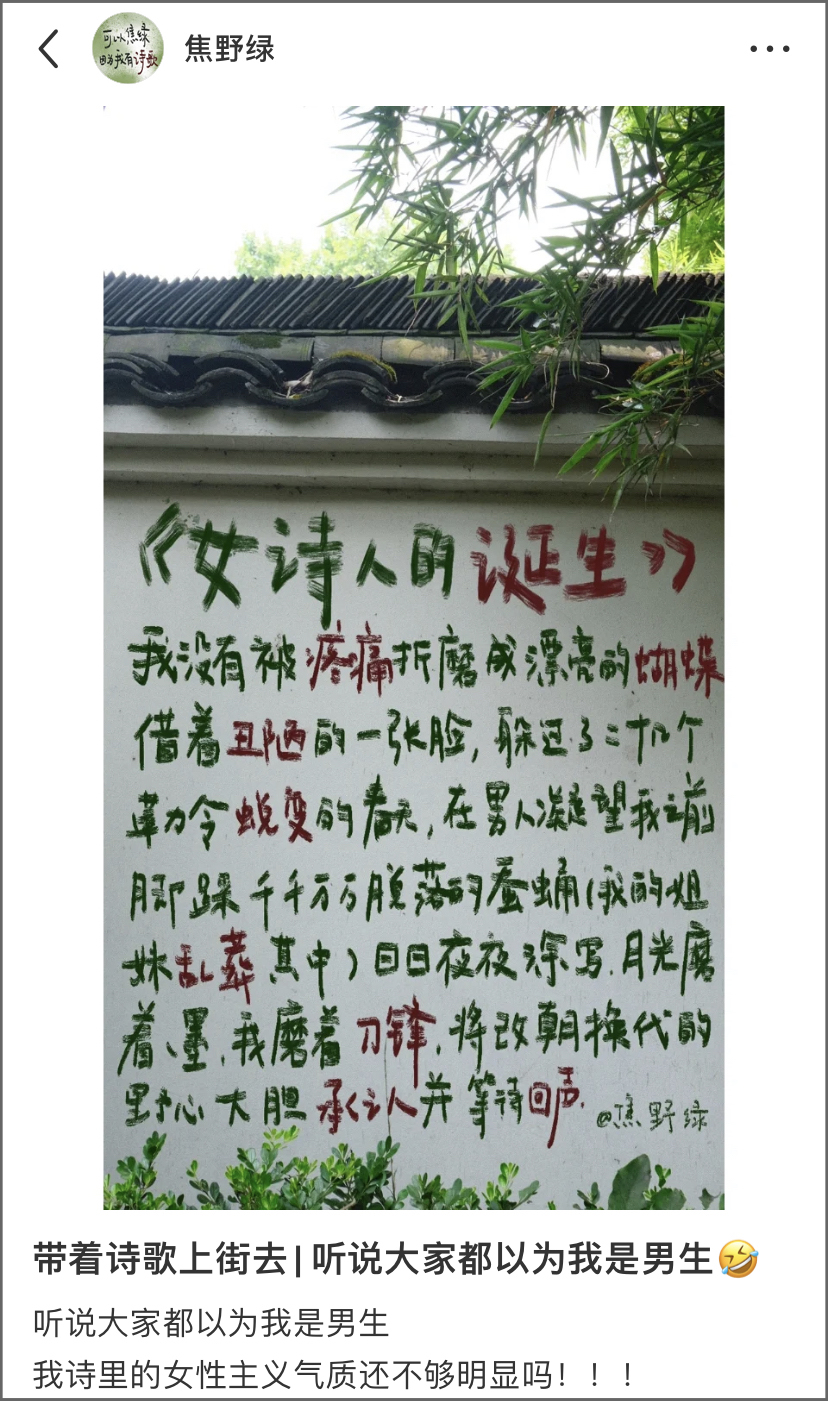 可以焦绿
因为我有诗歌
焦野绿
《女诗人的诞生》
我没有被疼痛折磨成漂亮的蝴蝶
借着丑陋的一张脸，躲过了二十几个
勒令蜕变的春天，在男人凝望我之前
脚踩千千万万脱落的蚕蛹（我的姐
妹乱葬其中）日日夜夜涂写.月光磨
着墨，我磨着刀锋，将改朝换代的
野心大胆承认并等待回声.
@焦野绿
带着诗歌上街去|听说大家都以为我是男生🤣
听说大家都以为我是男生
我诗里的女性主义气质还不够明显吗！！！